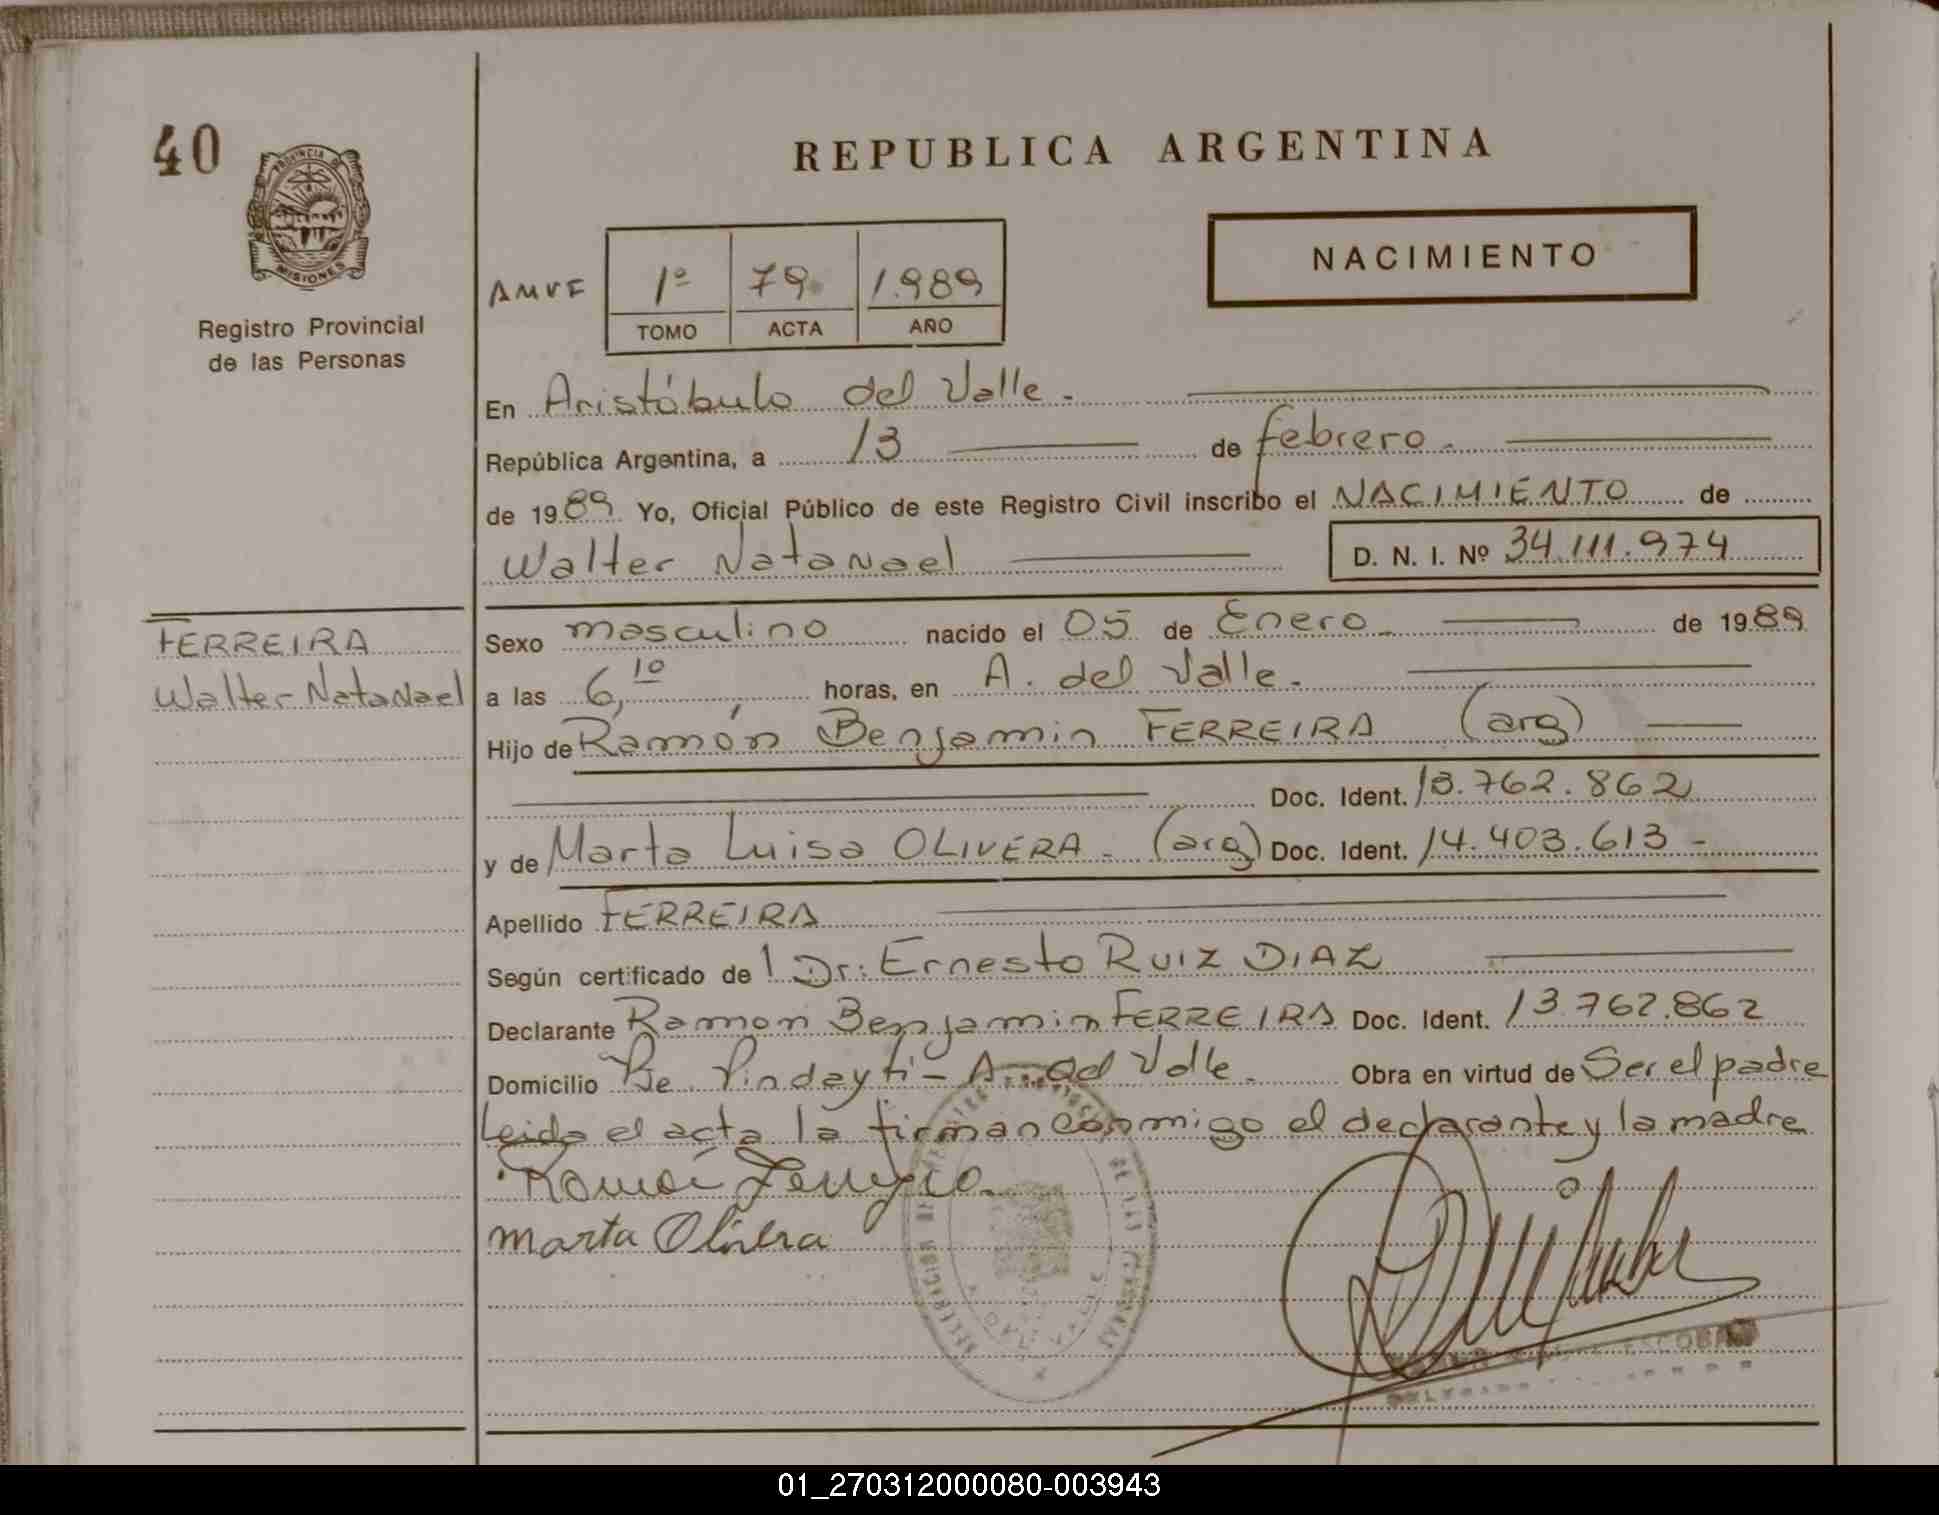 40
REPUBLICA ARGENTINA
PROVINCIA DE
MISIONES
Registro Provincial
de las Personas
NACIMIENTO
1º 79 1.989
TOMO ACTA AÑO
En Aristóbulo del Valle.
República Argentina, a 13 de febrero.
de 1989 Yo, Oficial Público de este Registro Civil inscribo el NACIMIENTO de
Walter Natanael D. N. I. Nº 34.111.974
FERREIRA
Walter Natanael
Sexo masculino nacido el 05 de Enero. de 1989
a las 6,10 horas, en A. del Valle.
Hijo de Ramón Benjamin FERREIRA (arg)
Doc. Ident. 13.762.862
y de Marta Luisa OLIVERA. (arg) Doc. Ident. 14.403.613 -
Apellido FERREIRA
Según certificado de l Dr: Ernesto RUIZ DIAZ
Declarante Ramon Benjamin FERREIRA Doc. Ident. 13.762.862
Domicilio Pindayti - A. del Valle. Obra en virtud de Ser el padre
Leida el acta la firman conmigo el declarante y la madre
Marta Olivera
ESCOBAR
01_270312000080-003943